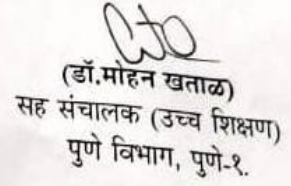 (डॉ.मोहन खताळ)
सह संचालक (उच्च शिक्षण)
पुणे विभाग, पुणे-१.